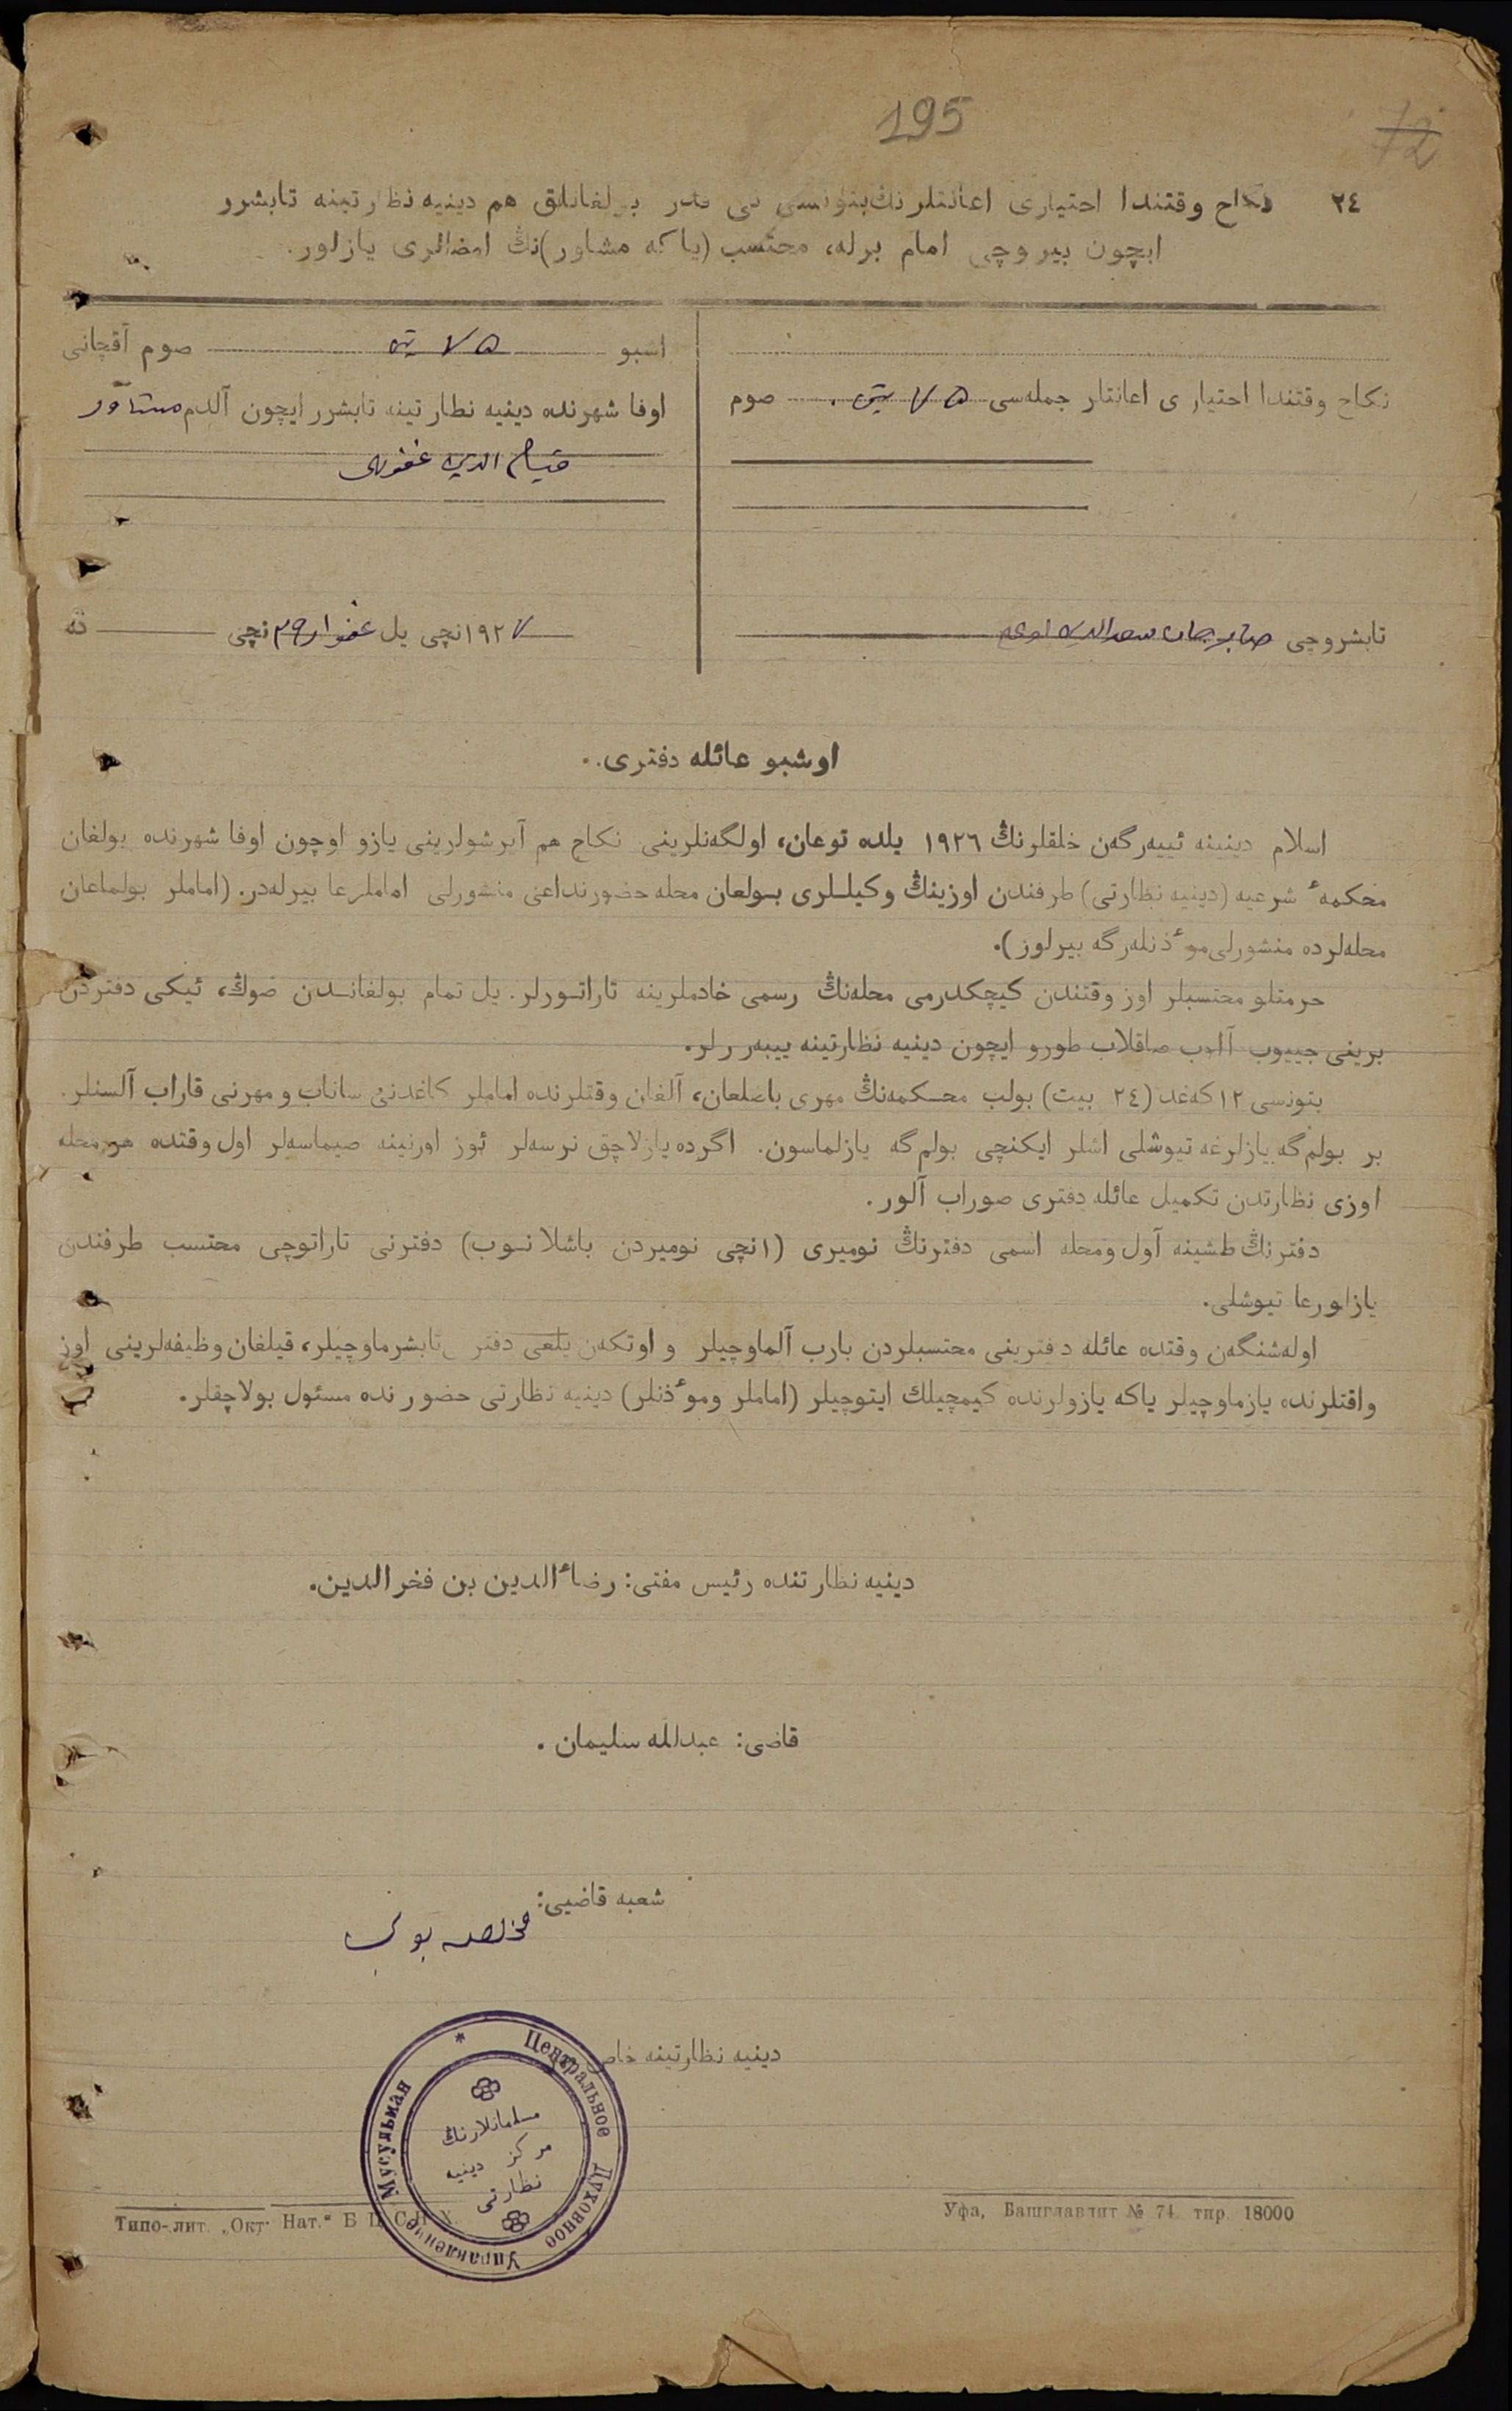 195
12
٢٤ نكاح وقتندا احتياری اعانتلرنڭ بتونسی نی قدر بولغانلق هم دينيه نظارتينه تابشرر
ايچون بيروچی امام برله، محتسب (ياكه مشاور)نڭ امضالری يازلور.
نكاح وقتندا احتياری اعانتلر جمله‌سی ٧٥ صوم
تابشروچی صابرجان سعدالدين
اشبو ٧٥ صوم آقچانی
اوفا شهرنده دينيه نظارتينه تابشرر ايچون آلدم
١٩٢٧ نچی يل نچی ده
اوشبو عائله دفتری.
اسلام دينينه ئييه‌رگەن خلقلرنڭ ١٩٢٦ يلده توعان، اولگەنلرينی نكاح هم آيرشولرينی يازو اوچون اوفا شهرنده بولغان
محكمهٔ شرعيه (دينيه نظارتی) طرفندن اوزينڭ وكيللری بولعان محله حضورنداعی منشورلی اماملرعا بيرله‌در. (اماملر بولماعان
محله‌لرده منشورلی موٴذنله‌رگه بيرلور).
حرمتلو محتسبلر اوز وقتندن كيچكدرمی محله‌نڭ رسمی خادملرينه تاراتورلر. يل تمام بولغاندن صوڭ، ئيكی دفتردن
برينی جييوب آلوب صاقلاب طورو ايچون دينيه نظارتينه ييبه‌ررلر.
بتونسی ١٢ كەغد (٢٤ بيت) بولب محكمه‌نڭ مهری باصلعان، آلغان وقتلرنده اماملر كاغدنی ساناب و مهرنی قاراب آلسنلر.
بر بولم گه يازلرغه تيوشلی اشلر ايكنچی بولم گه يازلماسون. اگرده يازلاچق نرسه‌لر ئوز اورنينه صيماسه‌لر اول وقتده هر محله
اوزی نظارتدن تكميل عائله دفتری صوراب آلور.
دفترنڭ طشينه آول ومحله اسمی دفترنڭ نوميری (١نچی نوميردن باشلانوب) دفترنی تاراتوچی محتسب طرفندن
يازلورعا تيوشلی.
اوله‌شنگەن وقتده عائله دفترينی محتسبلردن بارب آلماوچيلر و اوتكەن يلغی دفتر تابشرماوچيلر، قيلغان وظيفه‌لرينی اوز
واقتلرنده يازماوچيلر ياكه يازولرنده كيمچيلك ايتوچيلر (اماملر وموٴذنلر) دينيه نظارتی حضورنده مسئول بولاچقلر.
دينيه نظارتنده رئيس مفتی: رضاٴالدين بن فخرالدين.
قاضی: عبدالله سليمان.
شعبه قاضيی:
مخلصه بوبی
دينيه نظارتينه خاص
Центральное Духовное Управление Мусульман *
مسلمانلارنڭ
مركز دينيه
نظارتی
Типо-лит. „Окт. Нат.“ Б Ц С Н Х.
Уфа, Башглавлит № 74. тир. 18000